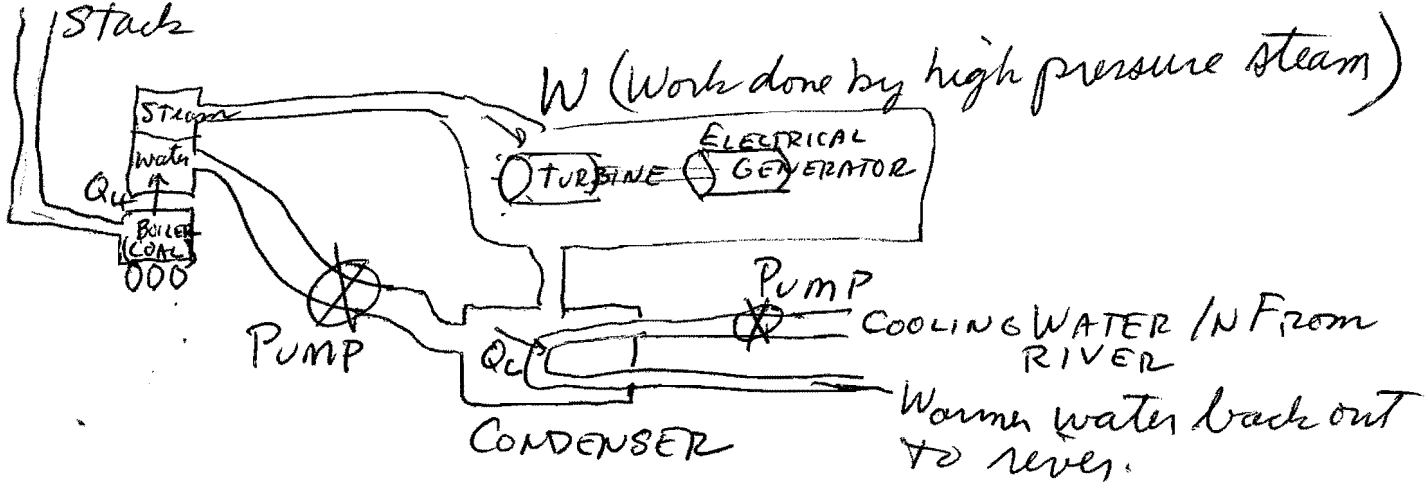 Stack
W (Work done by high pressure steam)
STEAM
Water
QH
BOILER
(COAL)
TURBINE
ELECTRICAL
GENERATOR
PUMP
PUMP
COOLING WATER IN FROM
RIVER
Qc
CONDENSER
Warmer water back out
to river.